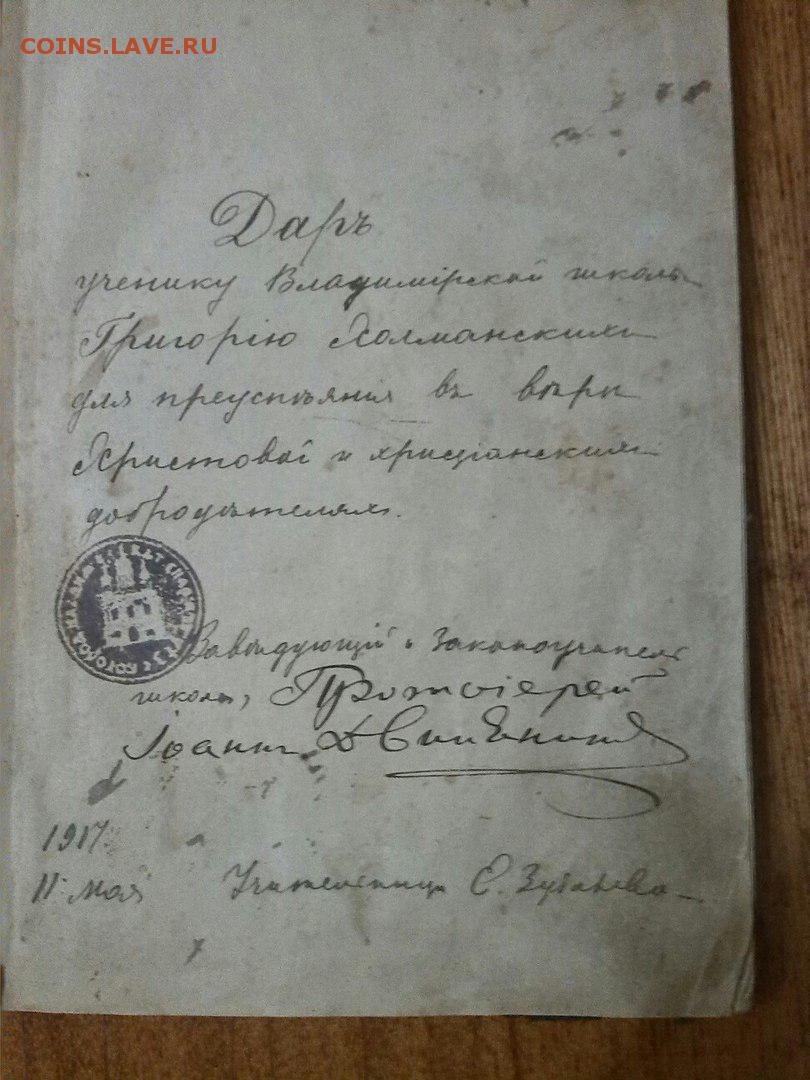 COINS.LAVE.RU
Даръ
ученику Владимірской школы
Григорію Холманскихъ
для преуспѣянія въ вѣрѣ
Христовой и христіанскихъ
добродѣтеляхъ.
Завѣдующій и Законоучитель
школы, Протоіерей
Іоаннъ
1917.
11 мая Учительница Е.